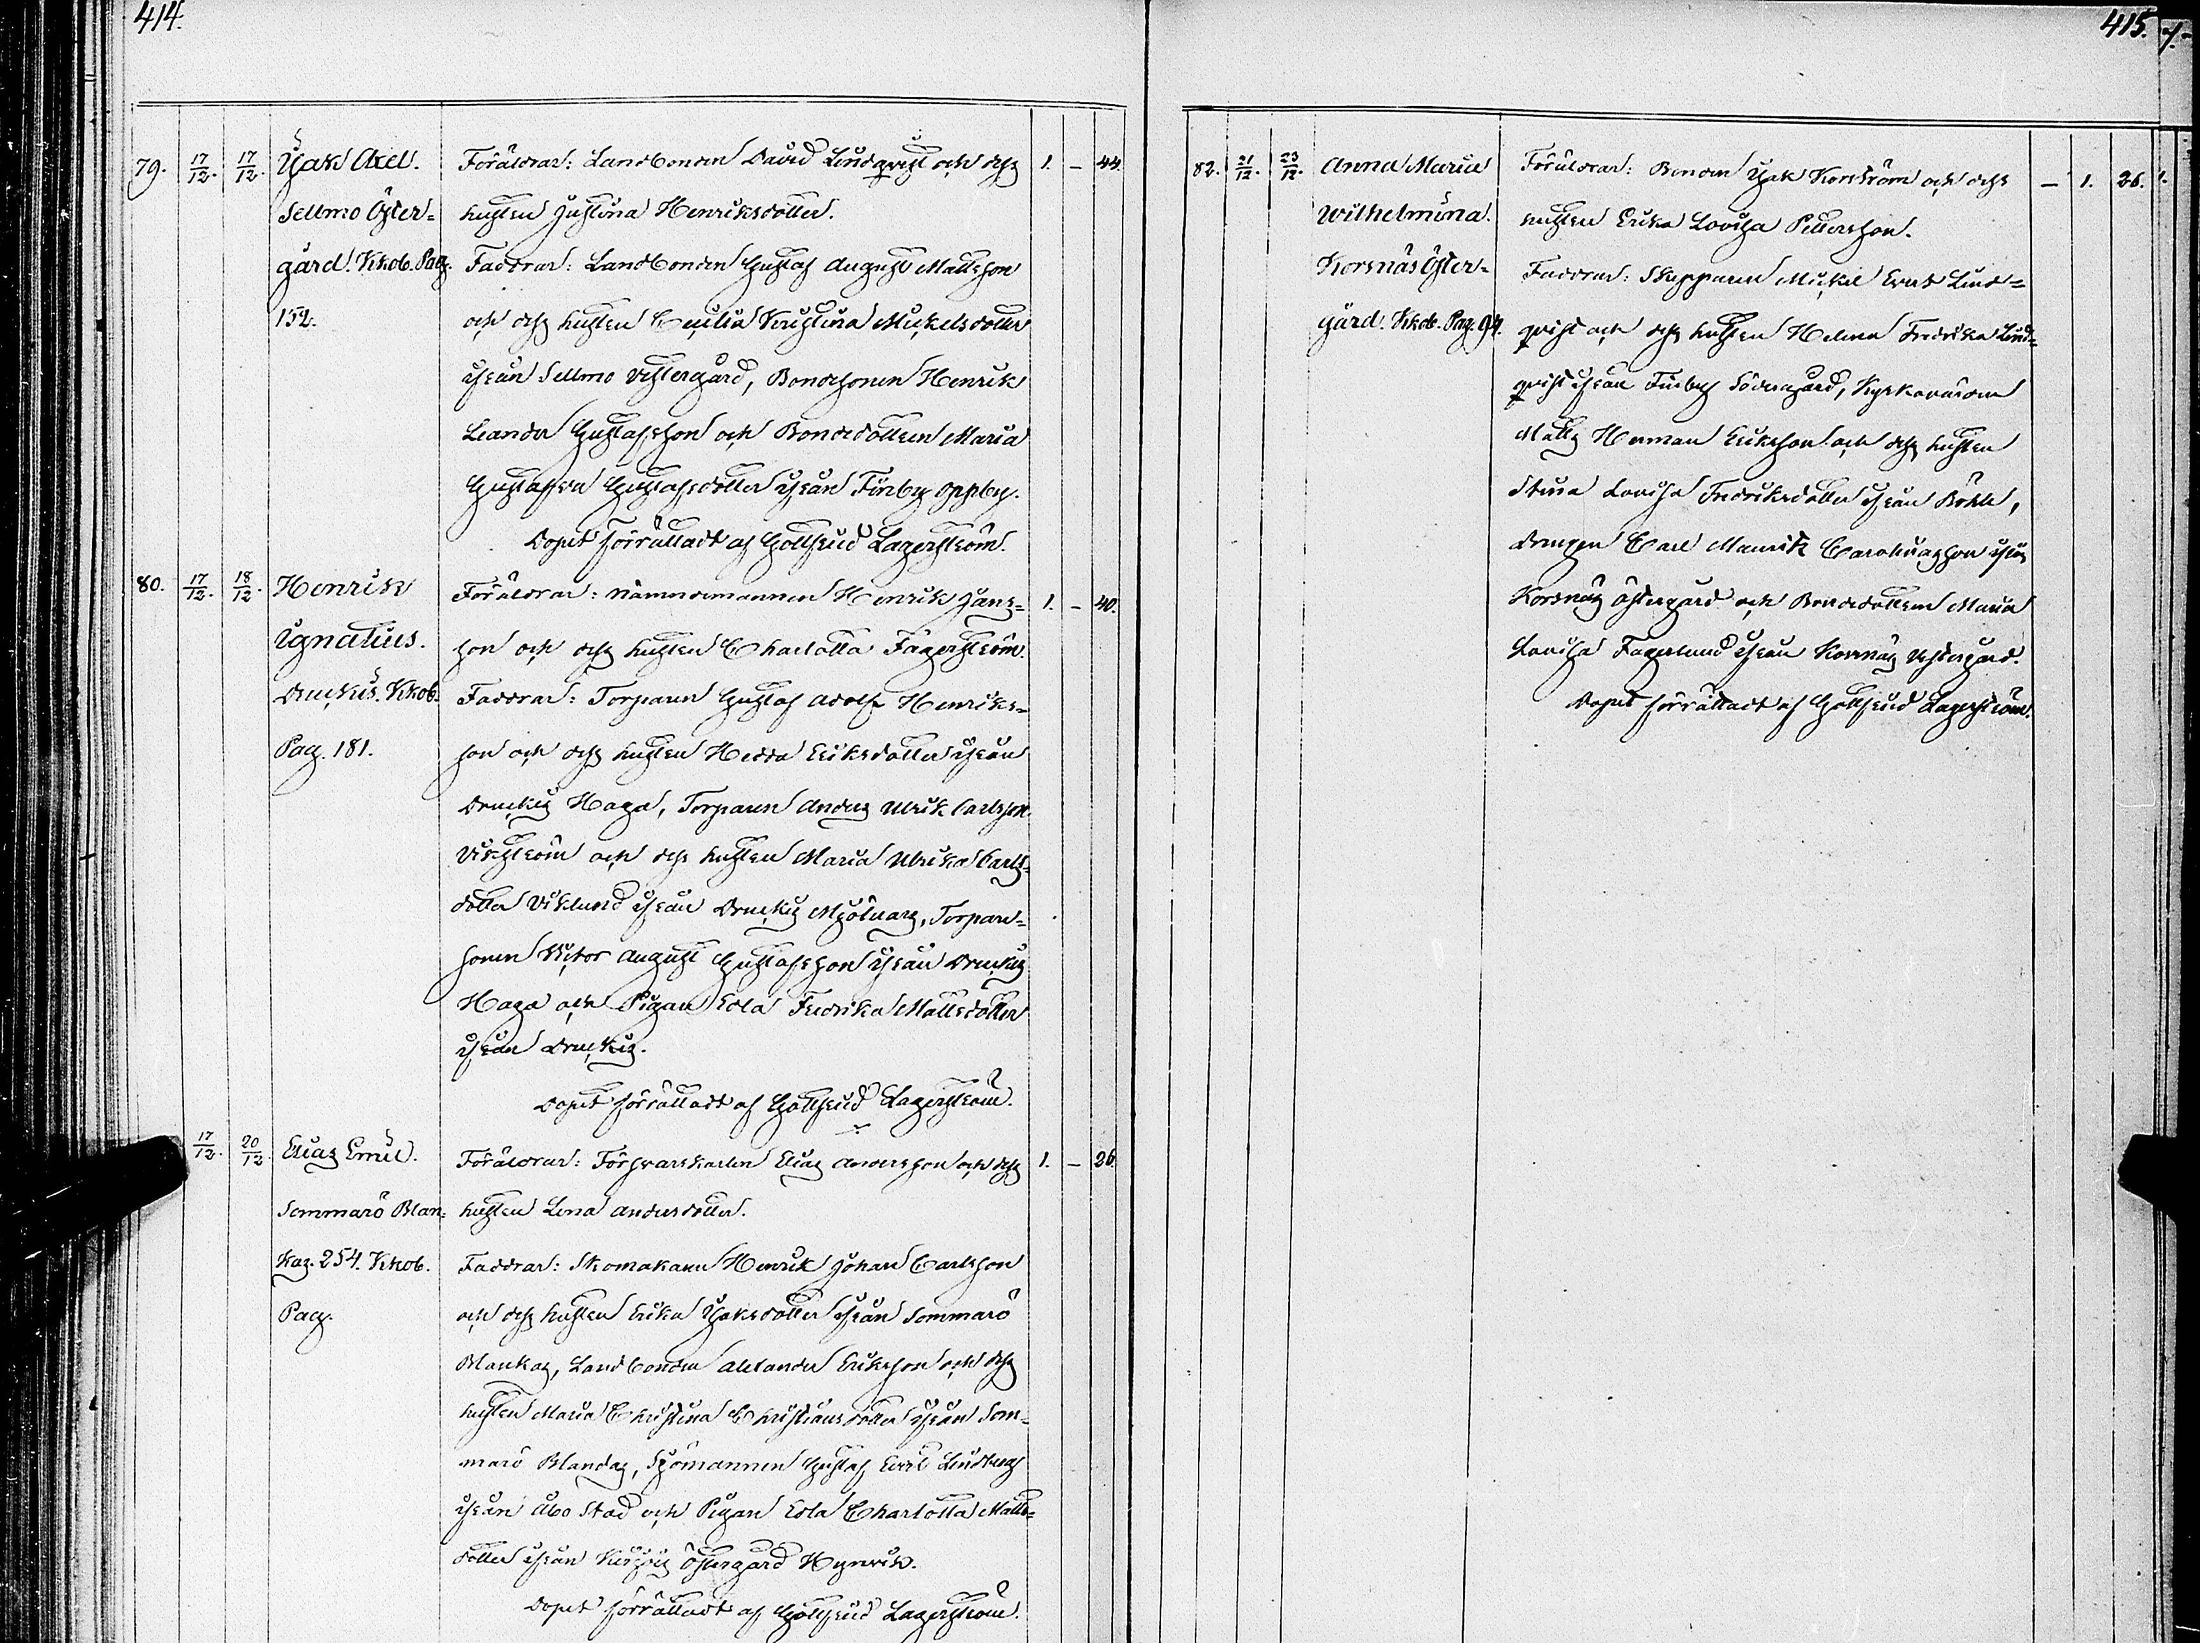 414.
79. 17/12. 17/12. Isak Axel. Föräldrar: Landbonden David Lindqvist och dess 1. – 44.
Sellmo Öster= hustru Justina Henriksdotter.
gård. Kkob. Pag. Faddrar: Landbonden Gustaf August Mattsson
152. och dess hustru Cecilia Kristina Mickelsdotter
ifrån Sellmo Vestergård, Bondesonen Henrik
Leander Gustafsson och Bondedottren Maria
Gustafva Gustafsdotter ifrån Finby Oppby.
Dopet förrättadt af Gottfrid Lagerström.
80. 17/12. 18/12. Henrik Föräldrar: Nämndemannen Henrik Jans= 1. – 40.
Ignatius. son och dess hustru Charlotta Fagerström.
Druckis. Kkob. Faddrar: Torparen Gustaf Adolf Henriks=
Pag. 181. son och dess hustru Hedda Eriksdotter ifrån
Druckis Haga, Torparen Anders Ulrik Carlsson
Vikström och dess hustru Maria Ulrika Carls=
dotter Viklund ifrån Druckis Mjölnars, Torpare=
sonen Victor August Gustafsson ifrån Druckis
Haga och Pigan Edla Fredrika Mattsdotter
ifrån Druckis.
Dopet förrättadt af Gottfrid Lagerström.
17/12. 20/12. Elias Emil. Föräldrar: Försvarskarlen Elias Andersson och dess 1. – 26.
Sommarö Blan= hustru Lena Andersdotter.
kas. 254. Kkob. Faddrar: Skomakaren Henrik Johan Carlsson
Pag. och dess hustru Erika Isaksdotter ifrån Sommarö
Blankas, Landbonden Alexander Eriksson och dess
hustru Maria Christina Christiansdotter ifrån Som=
marö Blandas, Sjömannen Gustaf Emil Lindberg
ifrån Åbo Stad och Pigan Edla Charlotta Matts=
dotter ifrån Östergård
Dopet förrättadt af Gottfrid Lagerström.
415.
82. 21/12. 23/12. Anna Maria Föräldrar: Bonden Isak Korström och dess – 1. 26.
Wilhelmina. hustru Erika Lovisa Pettersson.
Korsnäs Öster= Faddrar: Skepparen Mickel Ernst Lind=
gård. Kkob. Pag. 94. qvist och dess hustru Helena Fredrika Lind=
qvist ifrån Finby Södergård, Kyrkovärden
Matts Herman Eriksson och dess hustru
Stina Lovisa Fredriksdotter ifrån Böhle,
Drengen Carl Maurits Carolinasson ifrån
Korsnäs Östergård och Bondedottren Maria
Lovisa Fagerlund ifrån Korsnäs Vestergård.
Dopet förrättadt af Gottfrid Lagerström.